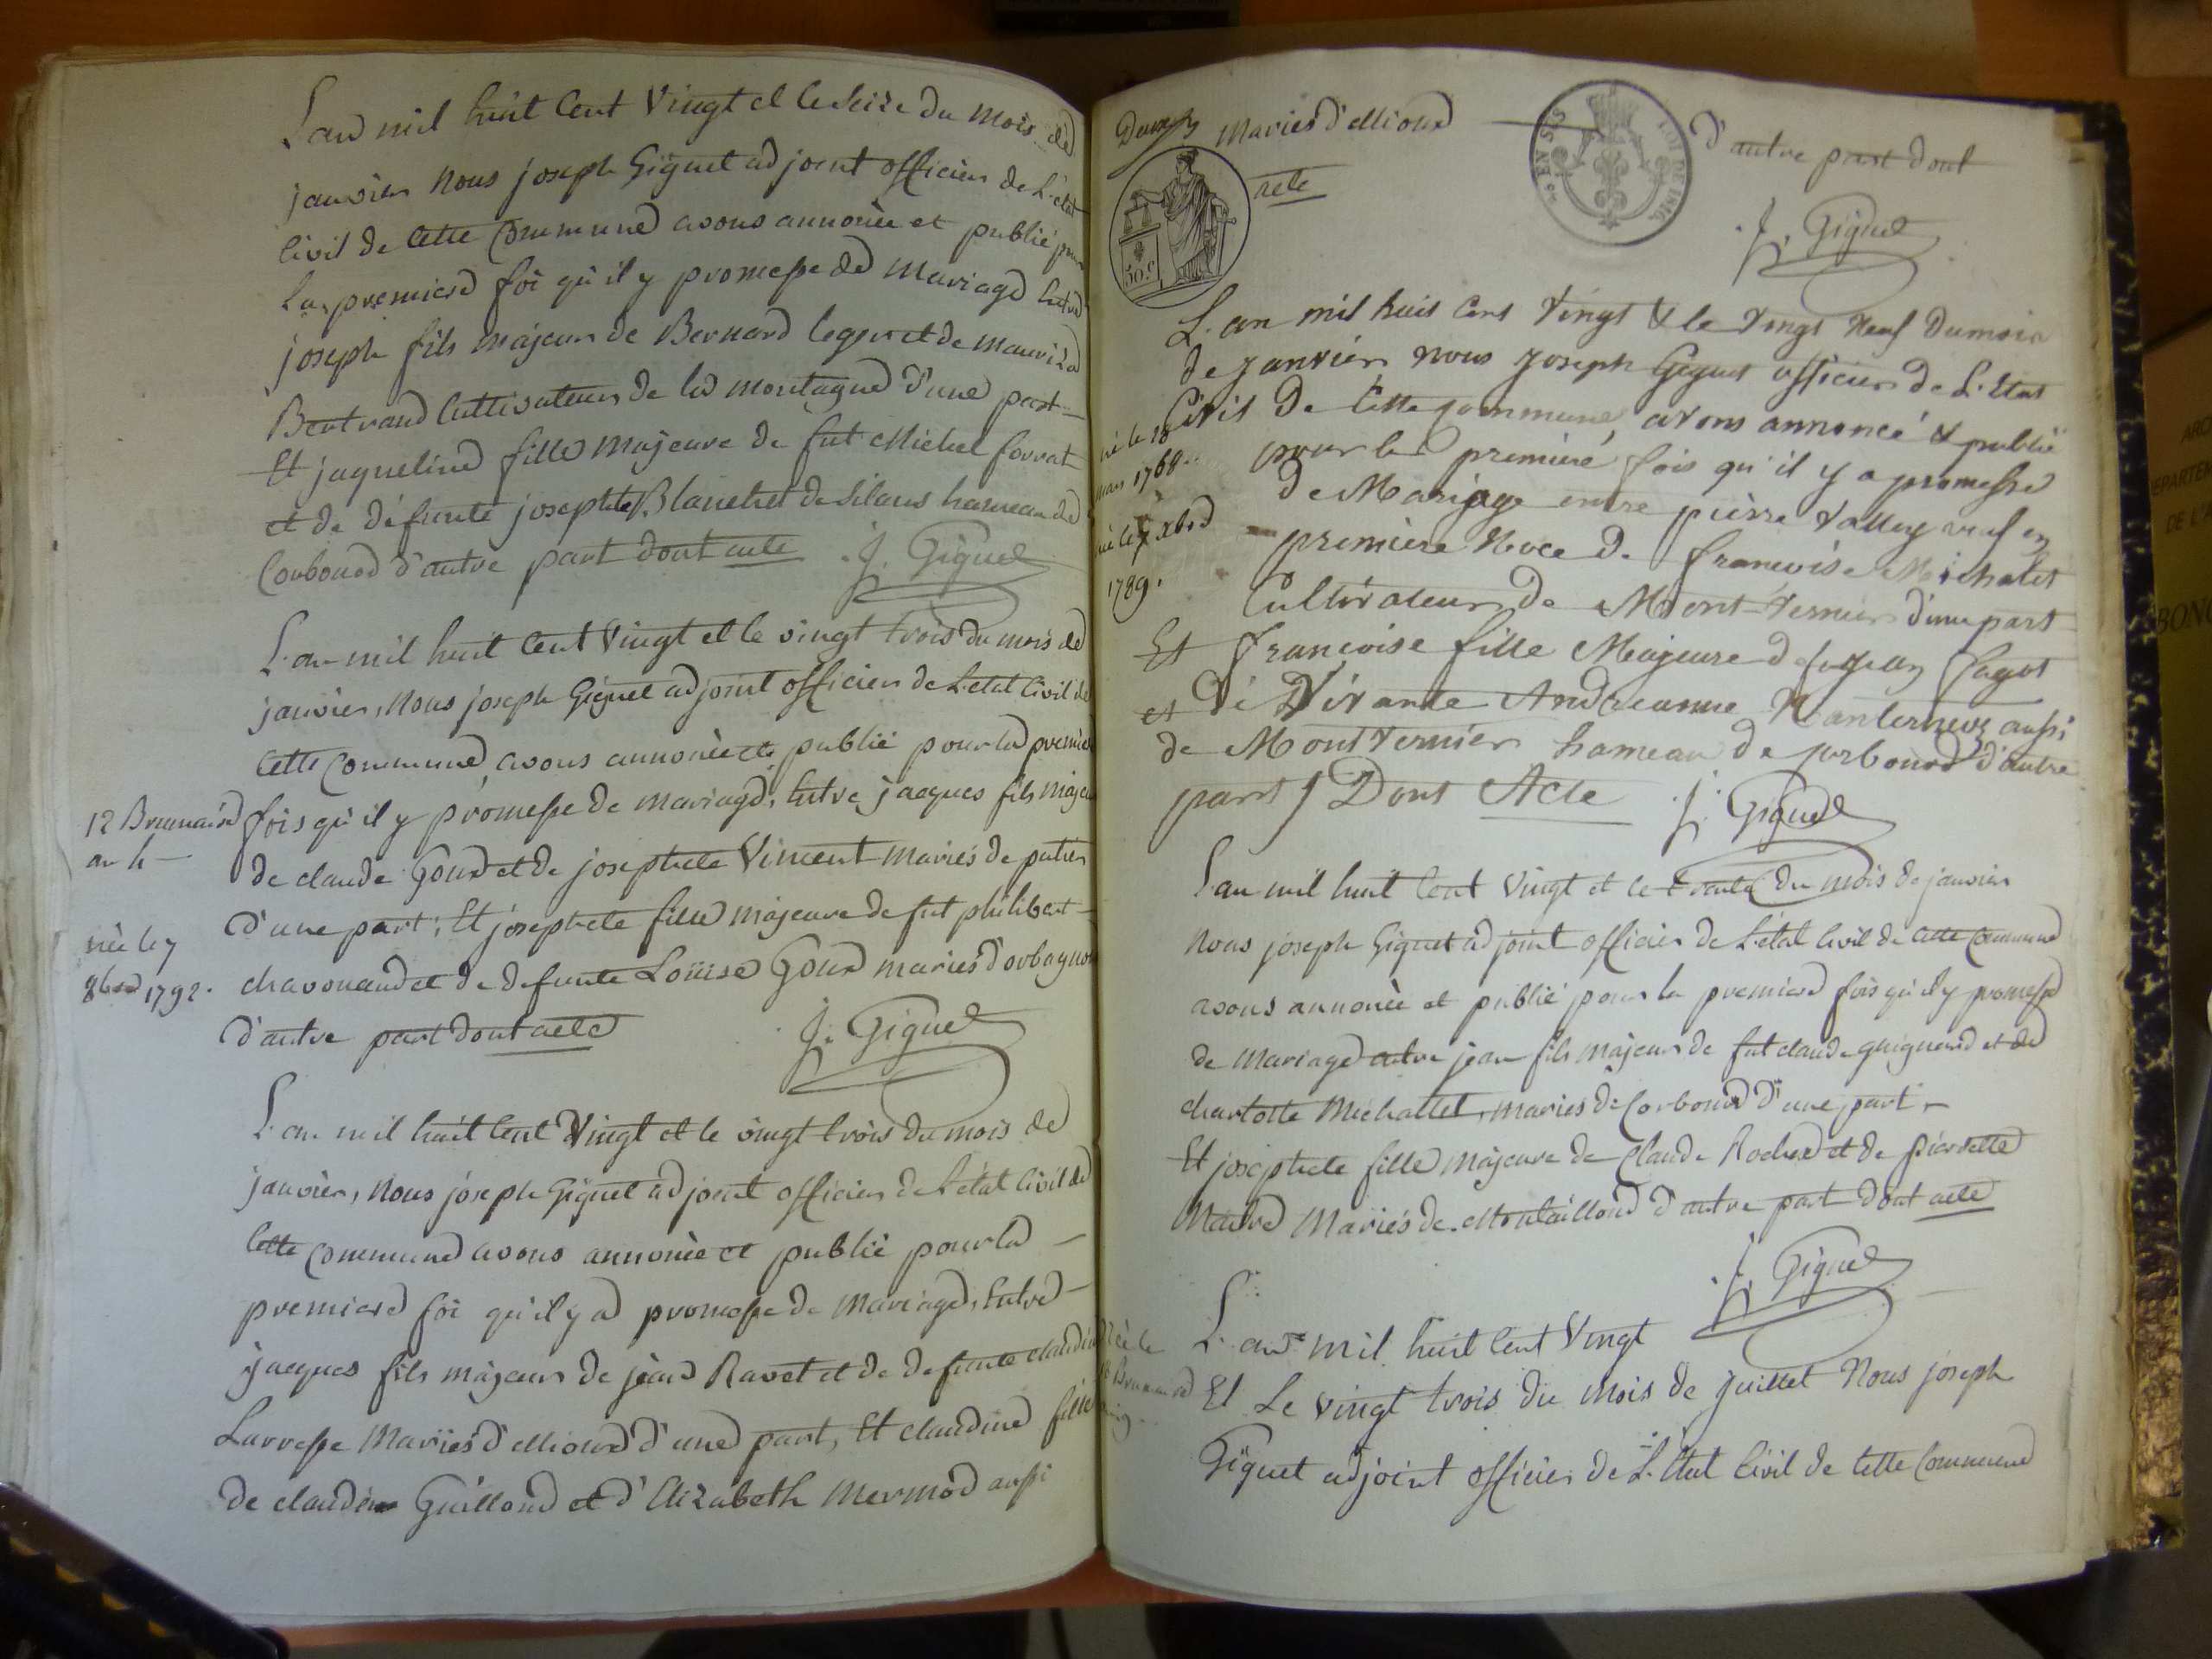 L'an mil huit Cent Vingt et le Seize du mois de
janvier Nous joseph Giguet adjoint officier de L'état
Civil de Cette Commune avons annoncée et publié pour
La premiere foi qu'il y promesse de Mariage Entre
joseph fils majeur de Bernard et de
Bertrand Cultivateur de la montagne d'une part
Et jaqueline fille majeure de fut Michel forrat
et de défunte josephte Blanchet de Silans hameau de
Corbonod d'autre part dont acte J. Giguet
L'an mil huit Cent Vingt et le vingt trois du mois de
janvier, Nous joseph Giguet adjoint officier de L'etat Civil de
Cette Commune, avons annoncée et publié pour la premiere
fois qu'il y promesse de mariage, Entre jacques fils majeur
12 Brumaire
an 4
de claude Gour et de josephte Vincent mariés de
d'une part, Et josephte fille majeure de fut philibert
née le 7
8bre 1792.
chavonand et de defunte Louise Gour mariés d'orbagnou
d'autre part dont acte J. Giguet
L'an mil huit Cent Vingt et le vingt trois du mois de
janvier, Nous joseph Giguet adjoint officier de L'état Civil de
Cette Commune avons annoncée et publié pour la
premiere foi qu'il y a promesse de Mariage, Entre
jacques fils majeur de jean Ravet et de defunte claudine
Larresse Mariés d' d'une part, Et claudine fille
de claude Guilland et d'Elizabeth Mermod aussi
mariés d' d'autre part dont
acte
50 C.
J. Giguet
L'an mil huit Cent Vingt & le Vingt Neuf du mois
de Janvier nous Joseph Giguet officier de L'Etat
Civil De Cette Commune, avons annoncé & publié
né le 18
mars 1768
pour la premiere fois qu'il y a promesse
de Mariage entre pierre Vallley veuf en
née le 7 Xbre
1789.
premiere Noce De francoise Michalet
Cultivateur De Mont Vernier d'une part
Et francoise fille Majeure de Jean Pagot
et De Vivante Andreanne aussi
de Mont Vernier hameau de Corbonod d'autre
part / Dont Acte J. Giguet
L'an mil huit Cent Vingt et le trente du mois de janvier
Nous joseph Giguet adjoint officier de L'état Civil de Cette Commune
avons annoncée et publié pour la premiere fois qu'il y promesse
de Mariage entre jean fils majeur de fut claude guignard et de
charlotte Michallet, mariés de Corbonod d'une part,
Et josephte fille majeure de Claude Rochex et de pierrette
Maitre Mariés de d'autre part dont acte
J. Giguet
L'an mil huit Cent Vingt
Née le
18 Brumaire
Et Le vingt trois du mois de Juillet Nous joseph
Giguet adjoint officier de L'Etat Civil de Cette Commune